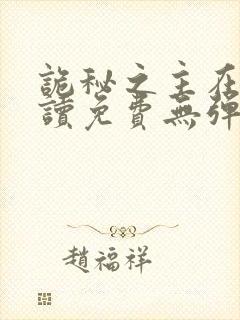 詭秘之主在
讀免費無彈
趙福祥